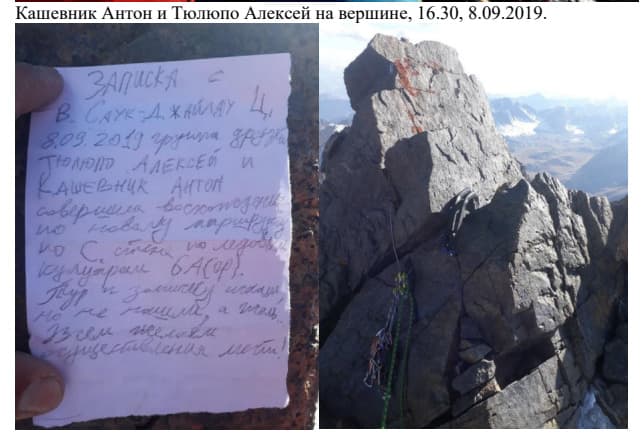 Кашевник Антон и Тюлюпо Алексей на вершине, 16.30, 8.09.2019.
ЗАПИСКА с
В. САУК-ДЖАЙЛАУ Ц.
8.09.2019 группа друзей
ТЮЛЮПО АЛЕКСЕЙ и
КАШЕВНИК АНТОН
совершила восхождение
по новому маршруту
по С. стене по ледовым
кулуарам 6А(ор).
Тур и записку искали,
но не нашли, а жаль.
Всем желаем
осуществления мечты!